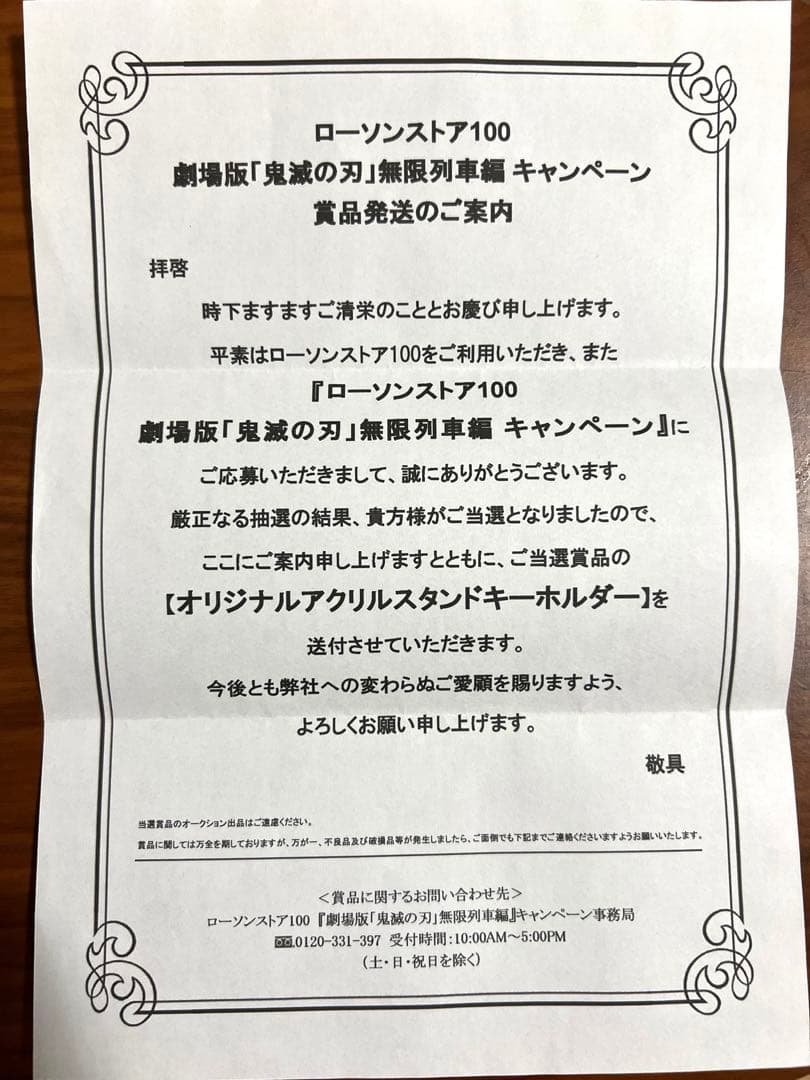 ローソンストア100
劇場版「鬼滅の刃」無限列車編 キャンペーン
賞品発送のご案内
拝啓
時下ますますご清栄のこととお慶び申し上げます。
平素はローソンストア100をご利用いただき、また
『ローソンストア100
劇場版「鬼滅の刃」無限列車編 キャンペーン』に
ご応募いただきまして、誠にありがとうございます。
厳正なる抽選の結果、貴方様がご当選となりましたので、
ここにご案内申し上げますとともに、ご当選賞品の
【オリジナルアクリルスタンドキーホルダー】を
送付させていただきます。
今後とも弊社への変わらぬご愛顧を賜りますよう、
よろしくお願い申し上げます。
敬具
当選賞品のオークション出品はご遠慮ください。
賞品に関しては万全を期しておりますが、万が一、不良品及び破損品等が発生しましたら、ご面倒でも下記までご連絡くださいますようお願いいたします。
＜賞品に関するお問い合わせ先＞
ローソンストア100 『劇場版「鬼滅の刃」無限列車編』キャンペーン事務局
0120-331-397 受付時間:10:00AM～5:00PM
(土・日・祝日を除く)